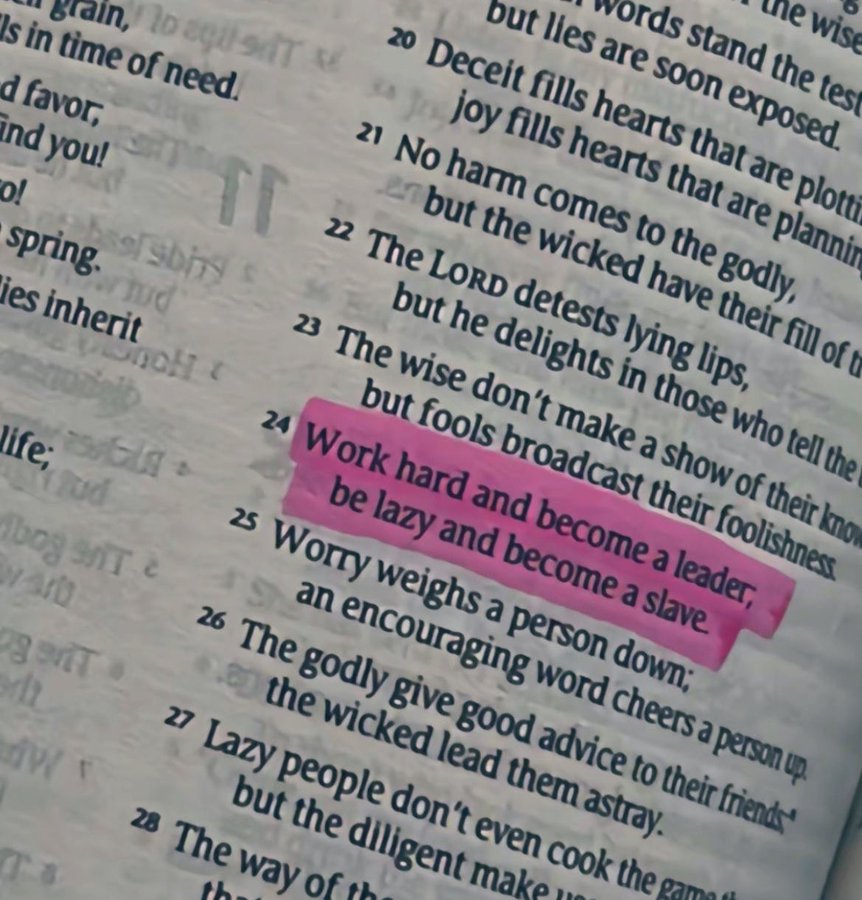 grain,
ls in time of need.
d favor,
find you!
o!
spring.
lies inherit
life;
words stand the test
but lies are soon exposed.
20 Deceit fills hearts that are plotti
joy fills hearts that are plannin
21 No harm comes to the godly,
but the wicked have their fill of t
22 The LORD detests lying lips,
but he delights in those who tell the
23 The wise don't make a show of their know
but fools broadcast their foolishness.
24 Work hard and become a leader;
be lazy and become a slave.
25 Worry weighs a person down;
an encouraging word cheers a person up.
26 The godly give good advice to their friends;
the wicked lead them astray.
27 Lazy people don't even cook the game th
but the diligent make
28 The way of the